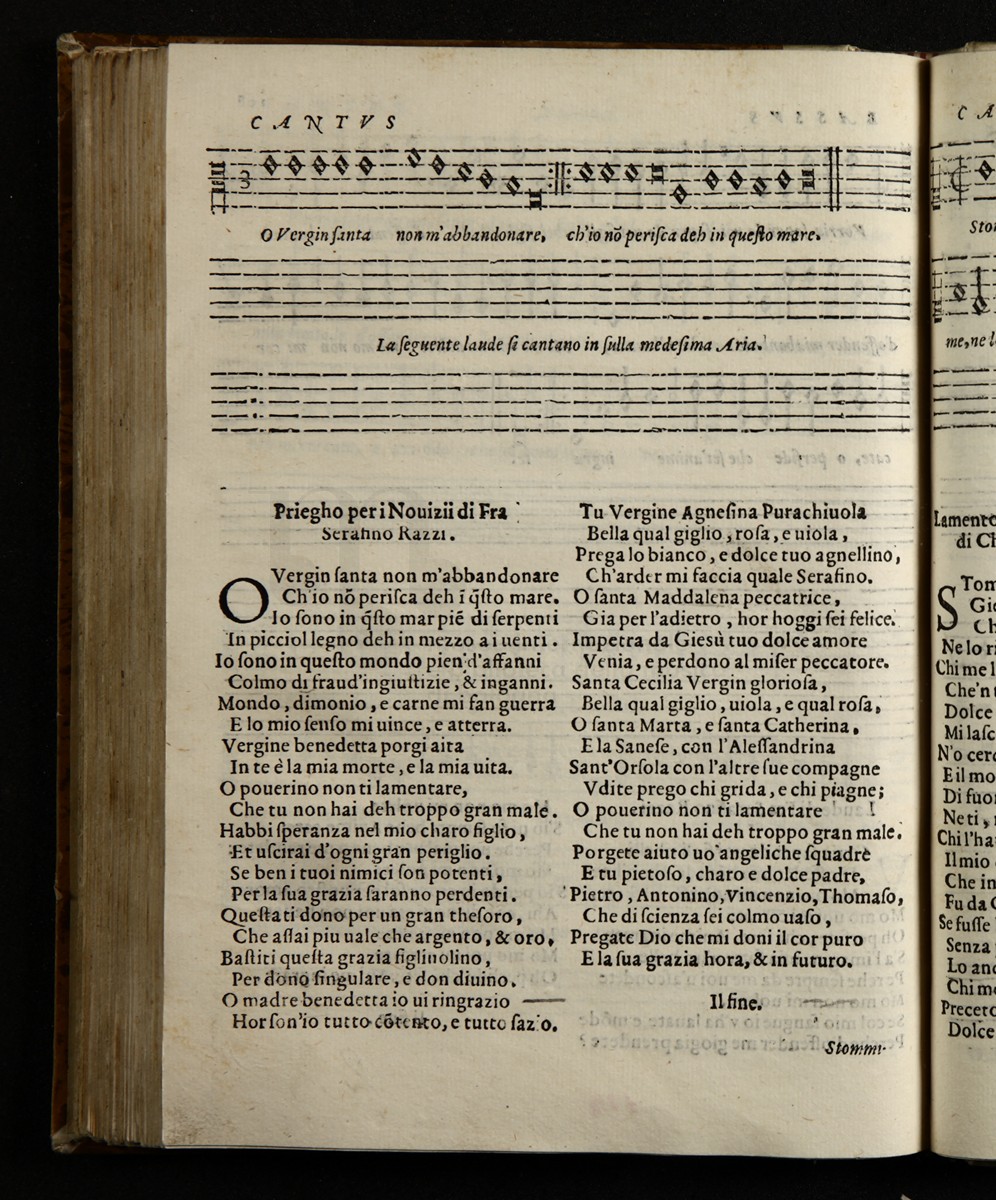 CANTVS
O Vergin ſanta non m'abbandonare, ch'io nō periſca deh in queſto mare.
La ſeguente laude ſi cantano in ſulla medeſima Aria.
Priegho per i Nouizii di Fra
Serafino Razzi.
O Vergin ſanta non m'abbandonare
Ch'io nō periſca deh ī q̄ſto mare.
Io ſono in q̄ſto mar piē di ſerpenti
In picciol legno deh in mezzo a i uenti.
Io ſono in queſto mondo pien d'affanni
Colmo di fraud'ingiuſtizie, & inganni.
Mondo, dimonio, e carne mi fan guerra
E lo mio ſenſo mi uince, e atterra.
Vergine benedetta porgi aita
In te è la mia morte, e la mia uita.
O pouerino non ti lamentare,
Che tu non hai deh troppo gran male.
Habbi ſperanza nel mio charo figlio,
Et uſcirai d'ogni gran periglio.
Se ben i tuoi nimici ſon potenti,
Per la ſua grazia ſaranno perdenti.
Queſta ti dono per un gran theſoro,
Che aſſai piu uale che argento, & oro,
Baſtiti queſta grazia figliuolino,
Per dono ſingulare, e don diuino.
O madre benedetta io ui ringrazio
Hor ſon'io tutto cōtento, e tutto ſazio.
Tu Vergine Agneſina Purachiuola
Bella qual giglio, roſa, e uiola,
Prega lo bianco, e dolce tuo agnellino,
Ch'arder mi faccia quale Serafino.
O ſanta Maddalena peccatrice,
Gia per l'adietro, hor hoggi ſei felice.
Impetra da Giesù tuo dolce amore
Venia, e perdono al miſer peccatore.
Santa Cecilia Vergin glorioſa,
Bella qual giglio, uiola, e qual roſa,
O ſanta Marta, e ſanta Catherina,
E la Saneſe, con l'Aleſſandrina
Sant'Orſola con l'altre ſue compagne
Vdite prego chi grida, e chi piagne;
O pouerino non ti lamentare
Che tu non hai deh troppo gran male.
Porgete aiuto uo'angeliche ſquadre
E tu pietoſo, charo e dolce padre,
Pietro, Antonino, Vincenzio, Thomaſo,
Che di ſcienza ſei colmo uaſo,
Pregate Dio che mi doni il cor puro
E la ſua grazia hora, & in futuro.
Il fine.
Stommi
C A
Sto
me, ne l
Lamento
di Ch
S Tom
Gi
Ch
Ne lo ri
Chi me l
Che'n t
Dolce
Mi laſc
N'o cer
E il mo
Di fuor
Ne ti,
Chi l'ha
Il mio
Che in
Fu da
Se fuſſe
Senza
Lo an
Chi m
Precet
Dolce